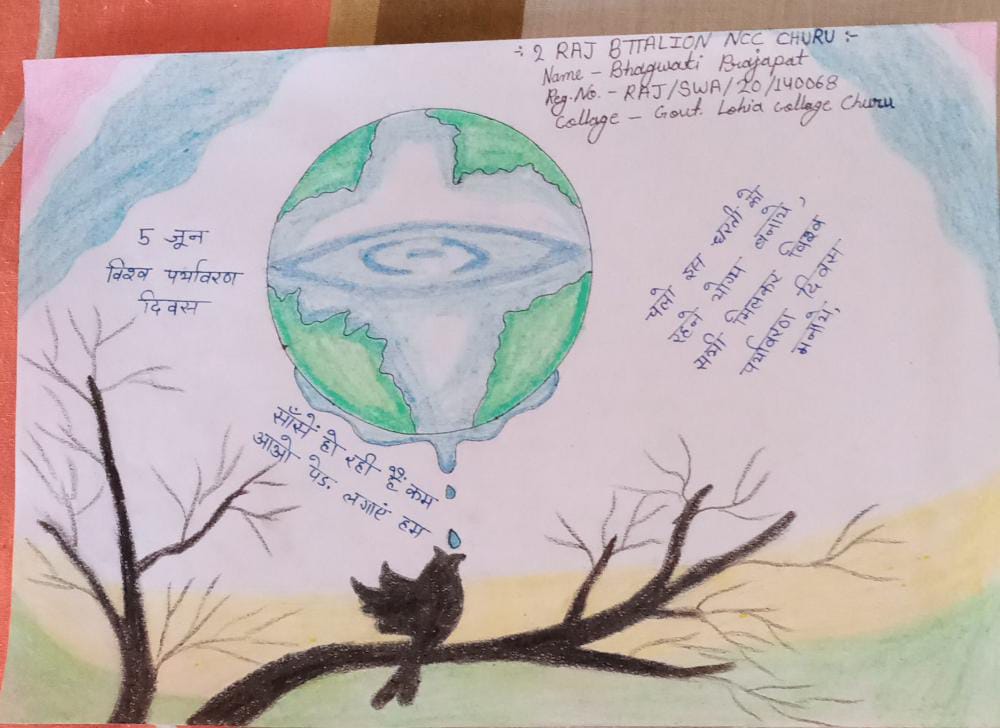 -: 2 RAJ BTTALION NCC CHURU :-
Name - Bhagwati Prajapat
Reg.No. - RAJ/SWA/20/140068
Collage - Gout. Lohia Collage Churu
5 जून
विश्व पर्यावरण
दिवस
चलो इस धरती को
रहने योग्य बनाये,
सभी मिलकर विश्व
पर्यावरण दिवस
मनाये,
साँसें हो रही हैं कम
आओ पेड़ लगाएं हम